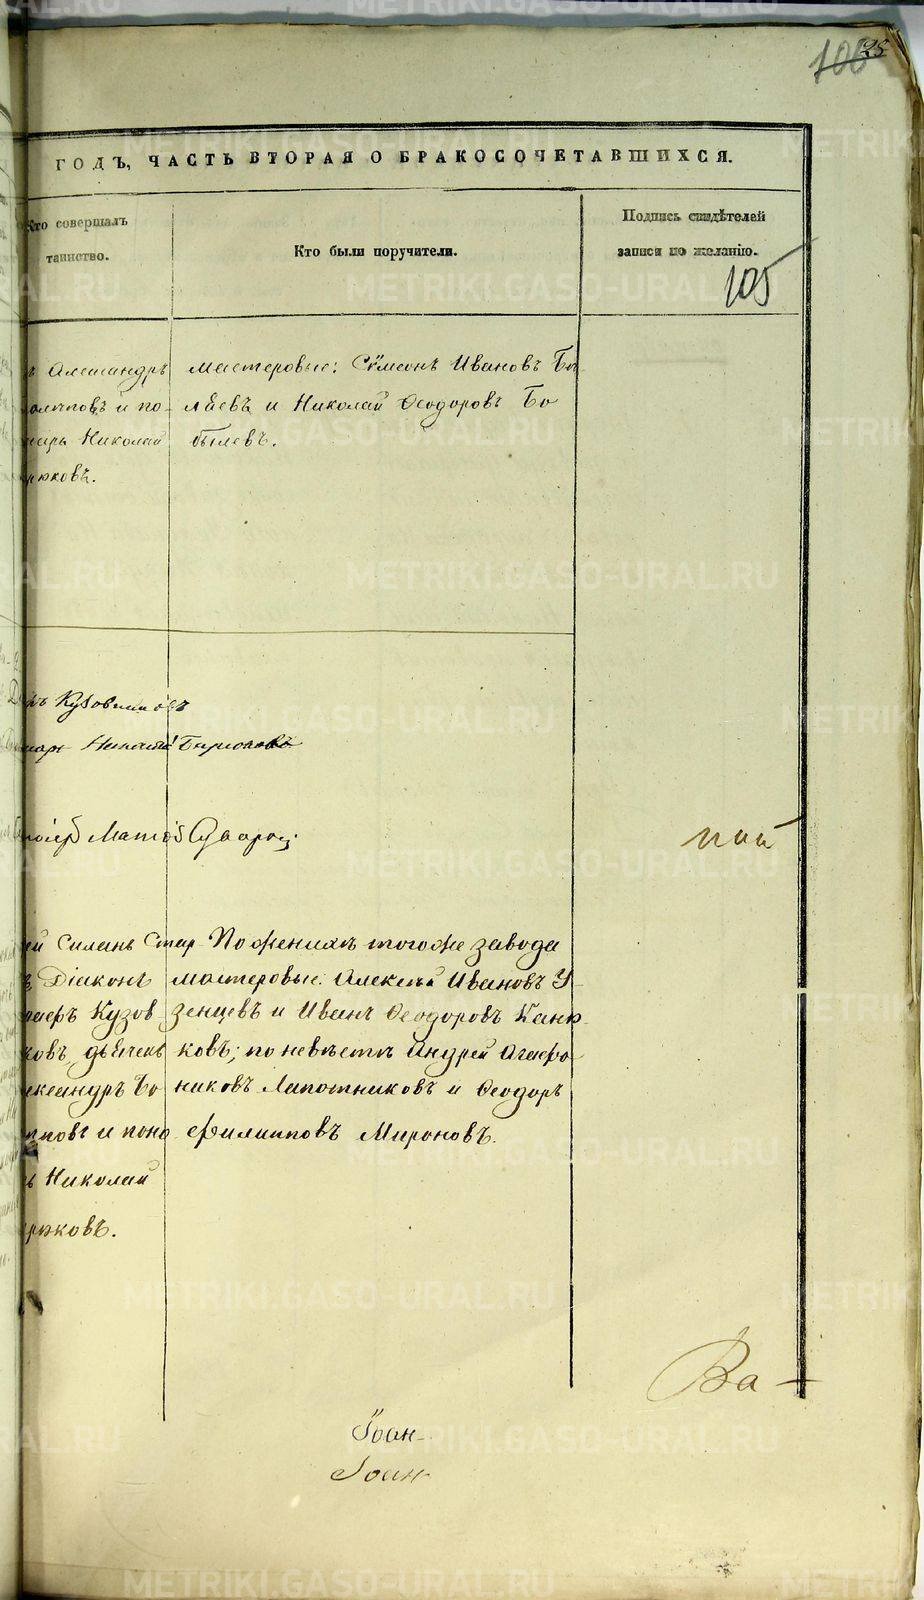 100 25
ГОДЪ, ЧАСТЬ ВТОРАЯ О БРАКОСОЧЕТАВШИХСЯ.
Кто совершалъ таинство.
Кто были поручители.
Подпись свидѣтелей записи по желанію.
105
ъ Александръ
и по-
Николай
рюковъ.
мастеровые: Сѵмеонъ Ивановъ Бѣ
ляевъ и Николай Ѳеодоровъ Бо
былевъ.
Кузовниковъ
Николай Бирюковъ
пой
ей Силинъ Стар
Діаконъ
Кузов
ковъ, дьячекъ
ександръ Бо
пповъ и поно
ь Николай
рюковъ.
По женихѣ тогоже завода
мастеровые: Алексѣй Ивановъ У-
зенцевъ и Иванъ Ѳеодоровъ Каню
ковъ; по невѣстѣ Андрей Агафо
никовъ Лапотниковъ и Ѳеодоръ
Филипповъ Мироновъ.
Ва-
Іоан-
Іоан-
METRIKI.GASO-URAL.RU